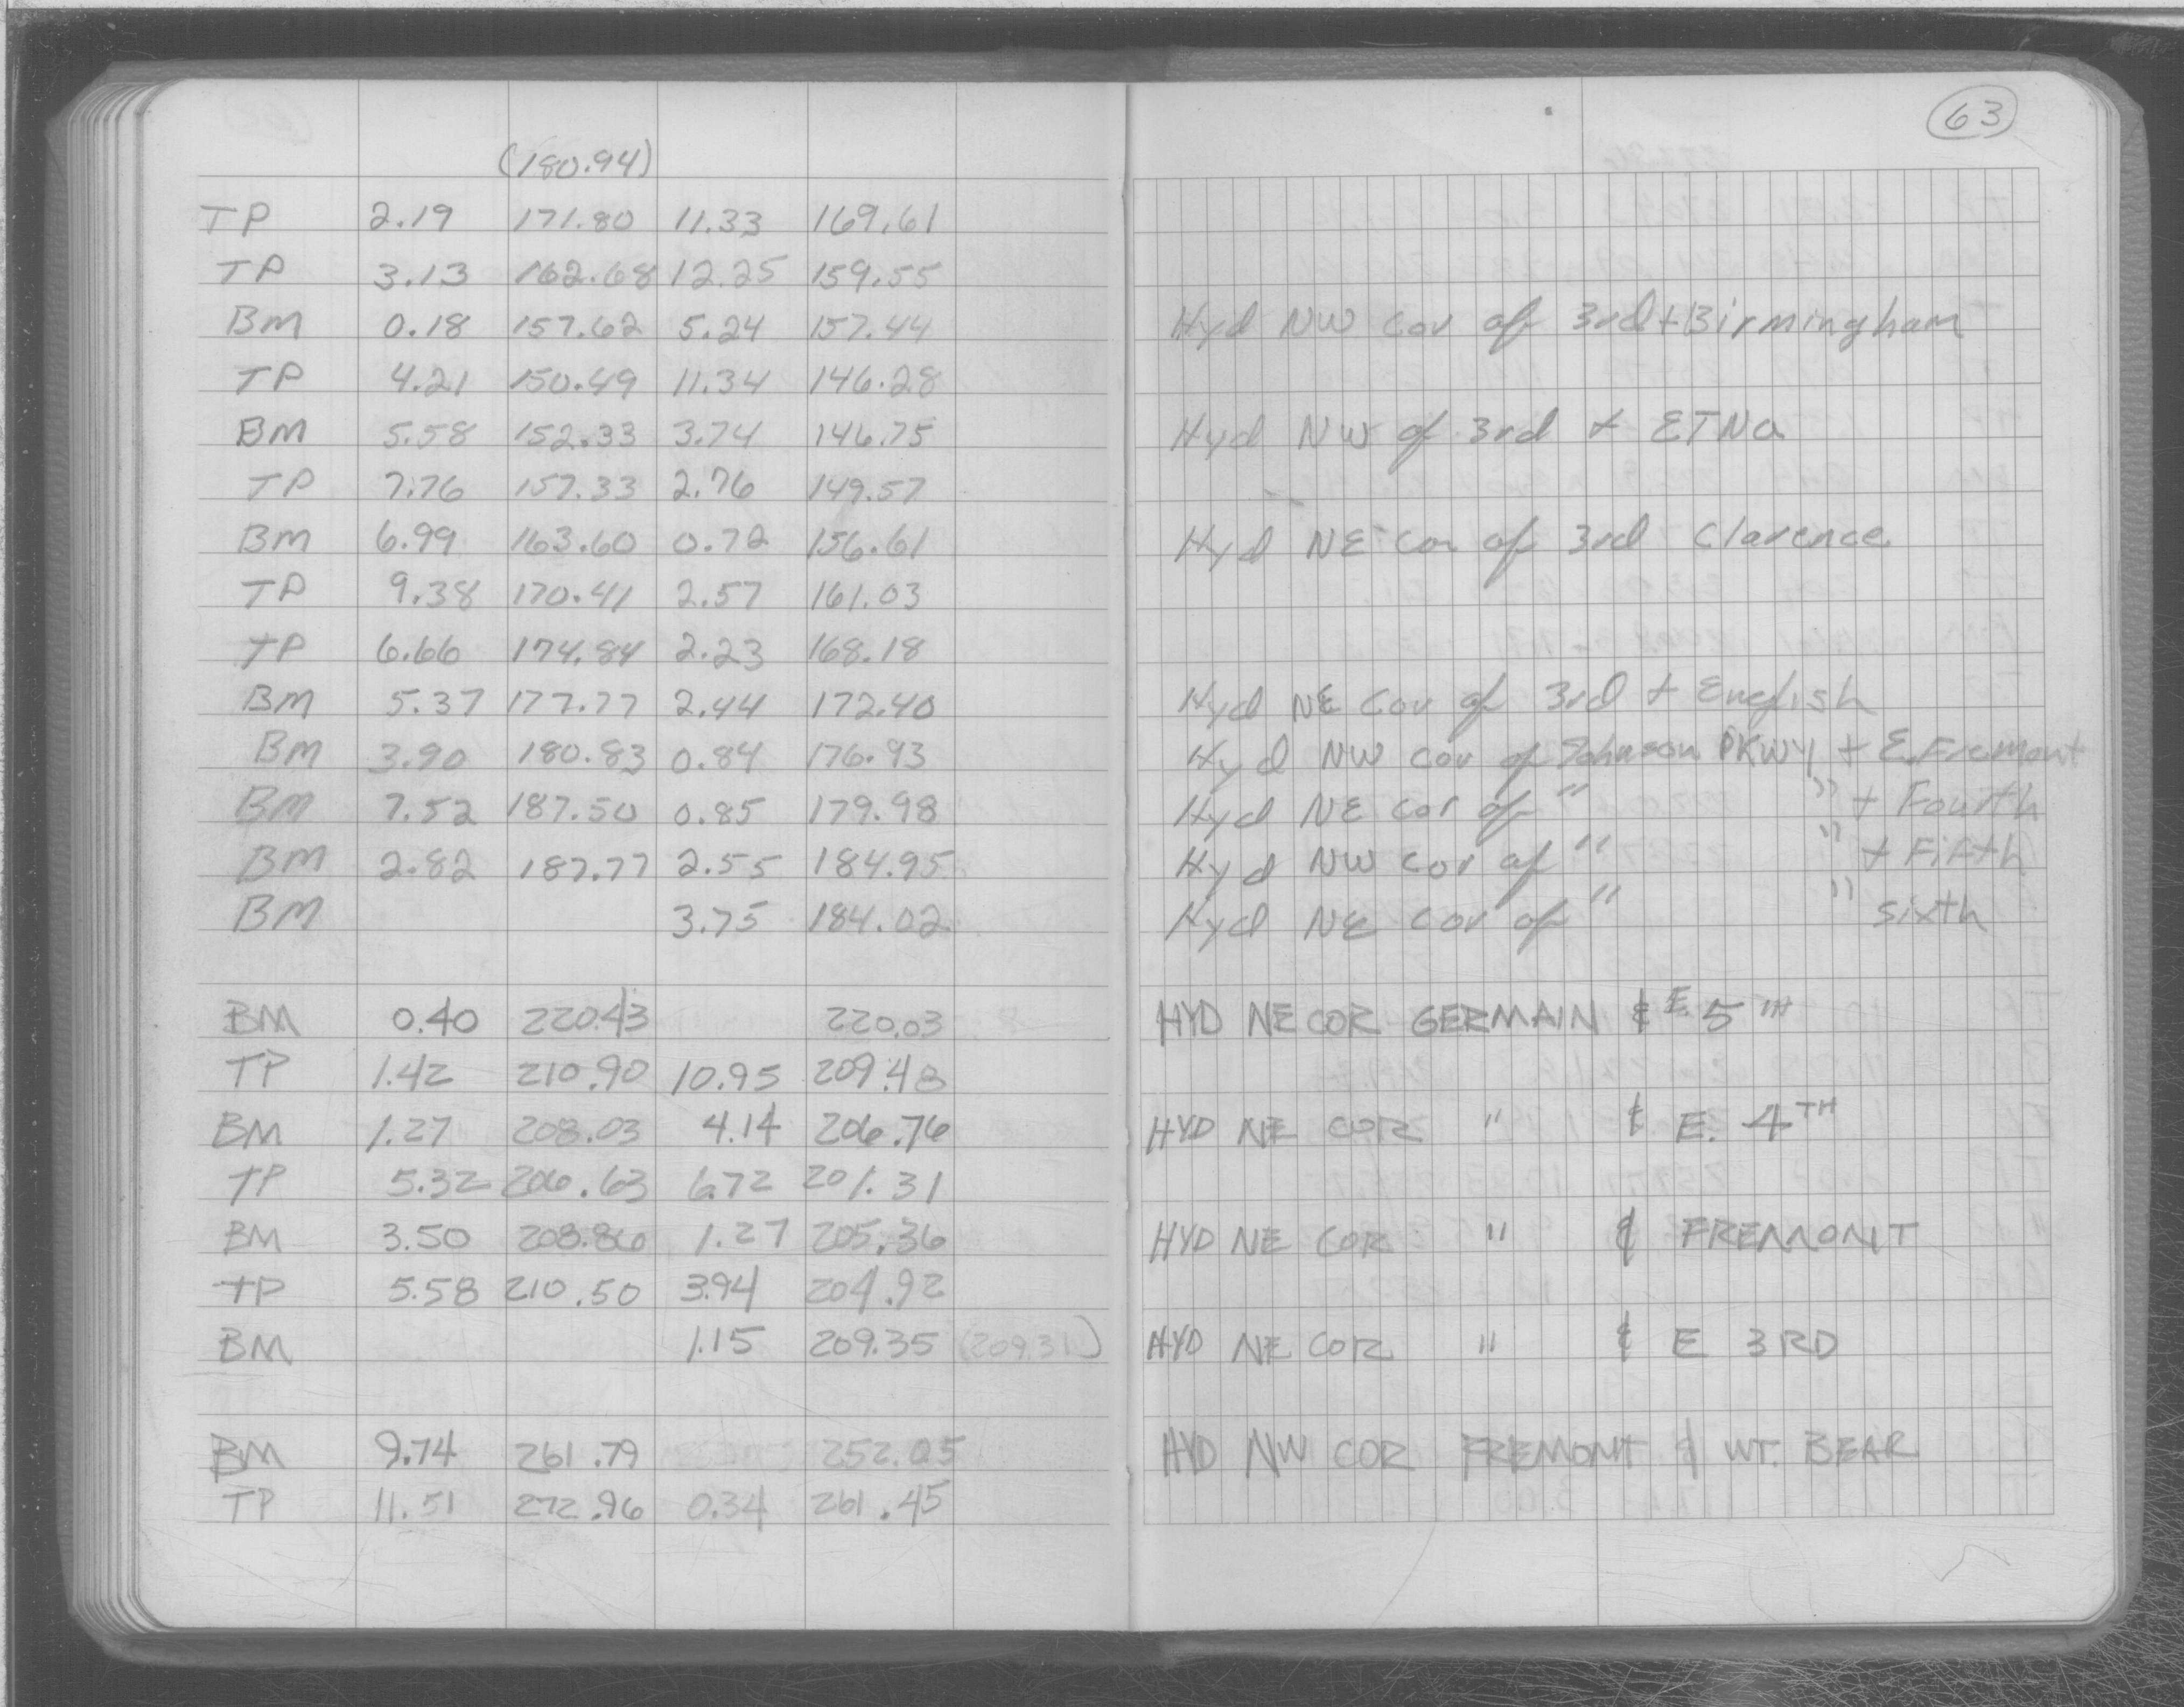 63
(180.94)
TP 2.19 171.80 11.33 169.61
TP 3.13 162.68 12.25 159.55
BM 0.18 157.62 5.24 157.44 Hyd NW Cor of 3rd + Birmingham
TP 4.21 150.49 11.34 146.28
BM 5.58 152.33 3.74 146.75 Hyd NW of 3rd + ETNa
TP 7.76 157.33 2.76 149.57
BM 6.99 163.60 0.72 156.61 Hyd NE Cor of 3rd Clarence
TP 9.38 170.41 2.57 161.03
TP 6.66 174.84 2.23 168.18
BM 5.37 177.77 2.44 172.40 Hyd NE Cor of 3rd +
BM 3.90 180.83 0.84 176.93 Hyd NW Cor of Johnson PKWY + E. Fremont
BM 7.52 187.50 0.85 179.98 Hyd NE Cor of " " + Fourth
BM 2.82 187.77 2.55 184.95 Hyd NW Cor of " " + Fifth
BM 3.75 184.02 Hyd NE Cor of " " sixth
BM 0.40 220.43 220.03 HYD NE COR GERMAIN & E. 5TH
TP 1.42 210.90 10.95 209.48
BM 1.27 208.03 4.14 206.76 HYD NE COR " & E. 4TH
TP 5.32 206.63 6.72 201.31
BM 3.50 208.86 1.27 205.36 HYD NE COR " & FREMONT
TP 5.58 210.50 3.94 204.92
BM 1.15 209.35 (209.31) HYD NE COR " & E 3RD
BM 9.74 261.79 252.05 HYD NW COR FREMONT & WT. BEAR
TP 11.51 272.96 0.34 261.45